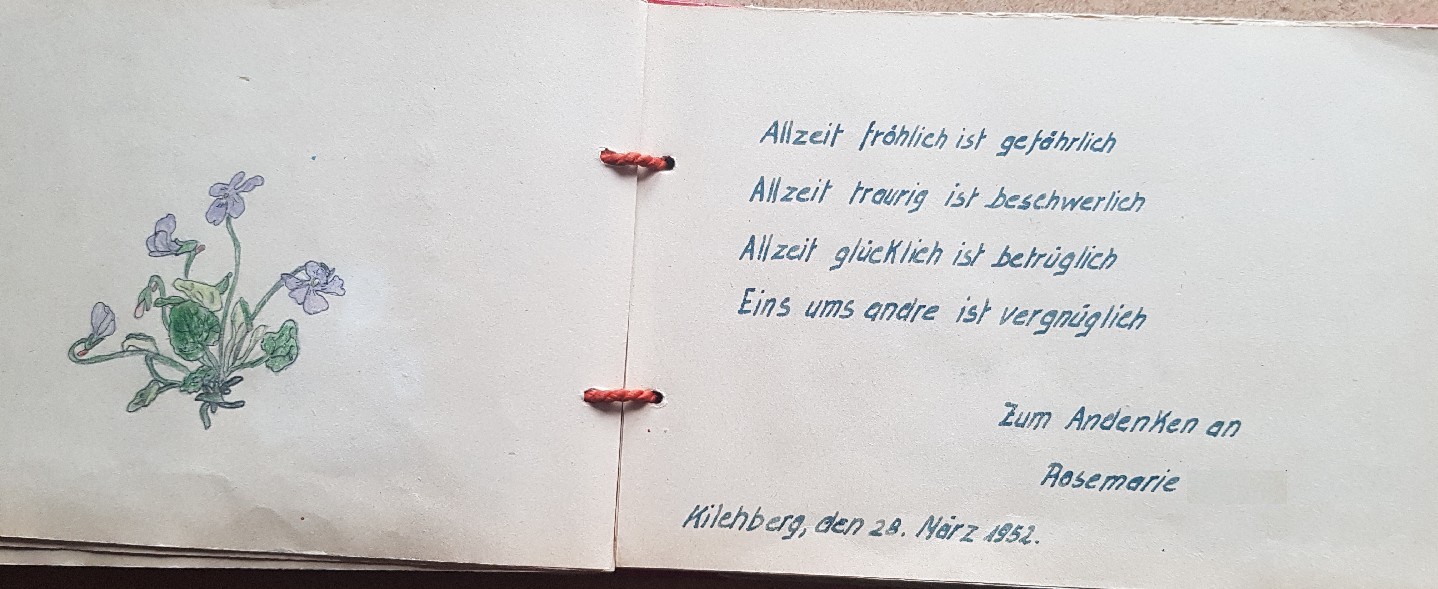 Allzeit fröhlich ist gefährlich
Allzeit traurig ist beschwerlich
Allzeit glücklich ist betrüglich
Eins ums andre ist vergnüglich
Zum Andenken an
Rosemarie
Kilchberg, den 28. März 1952.